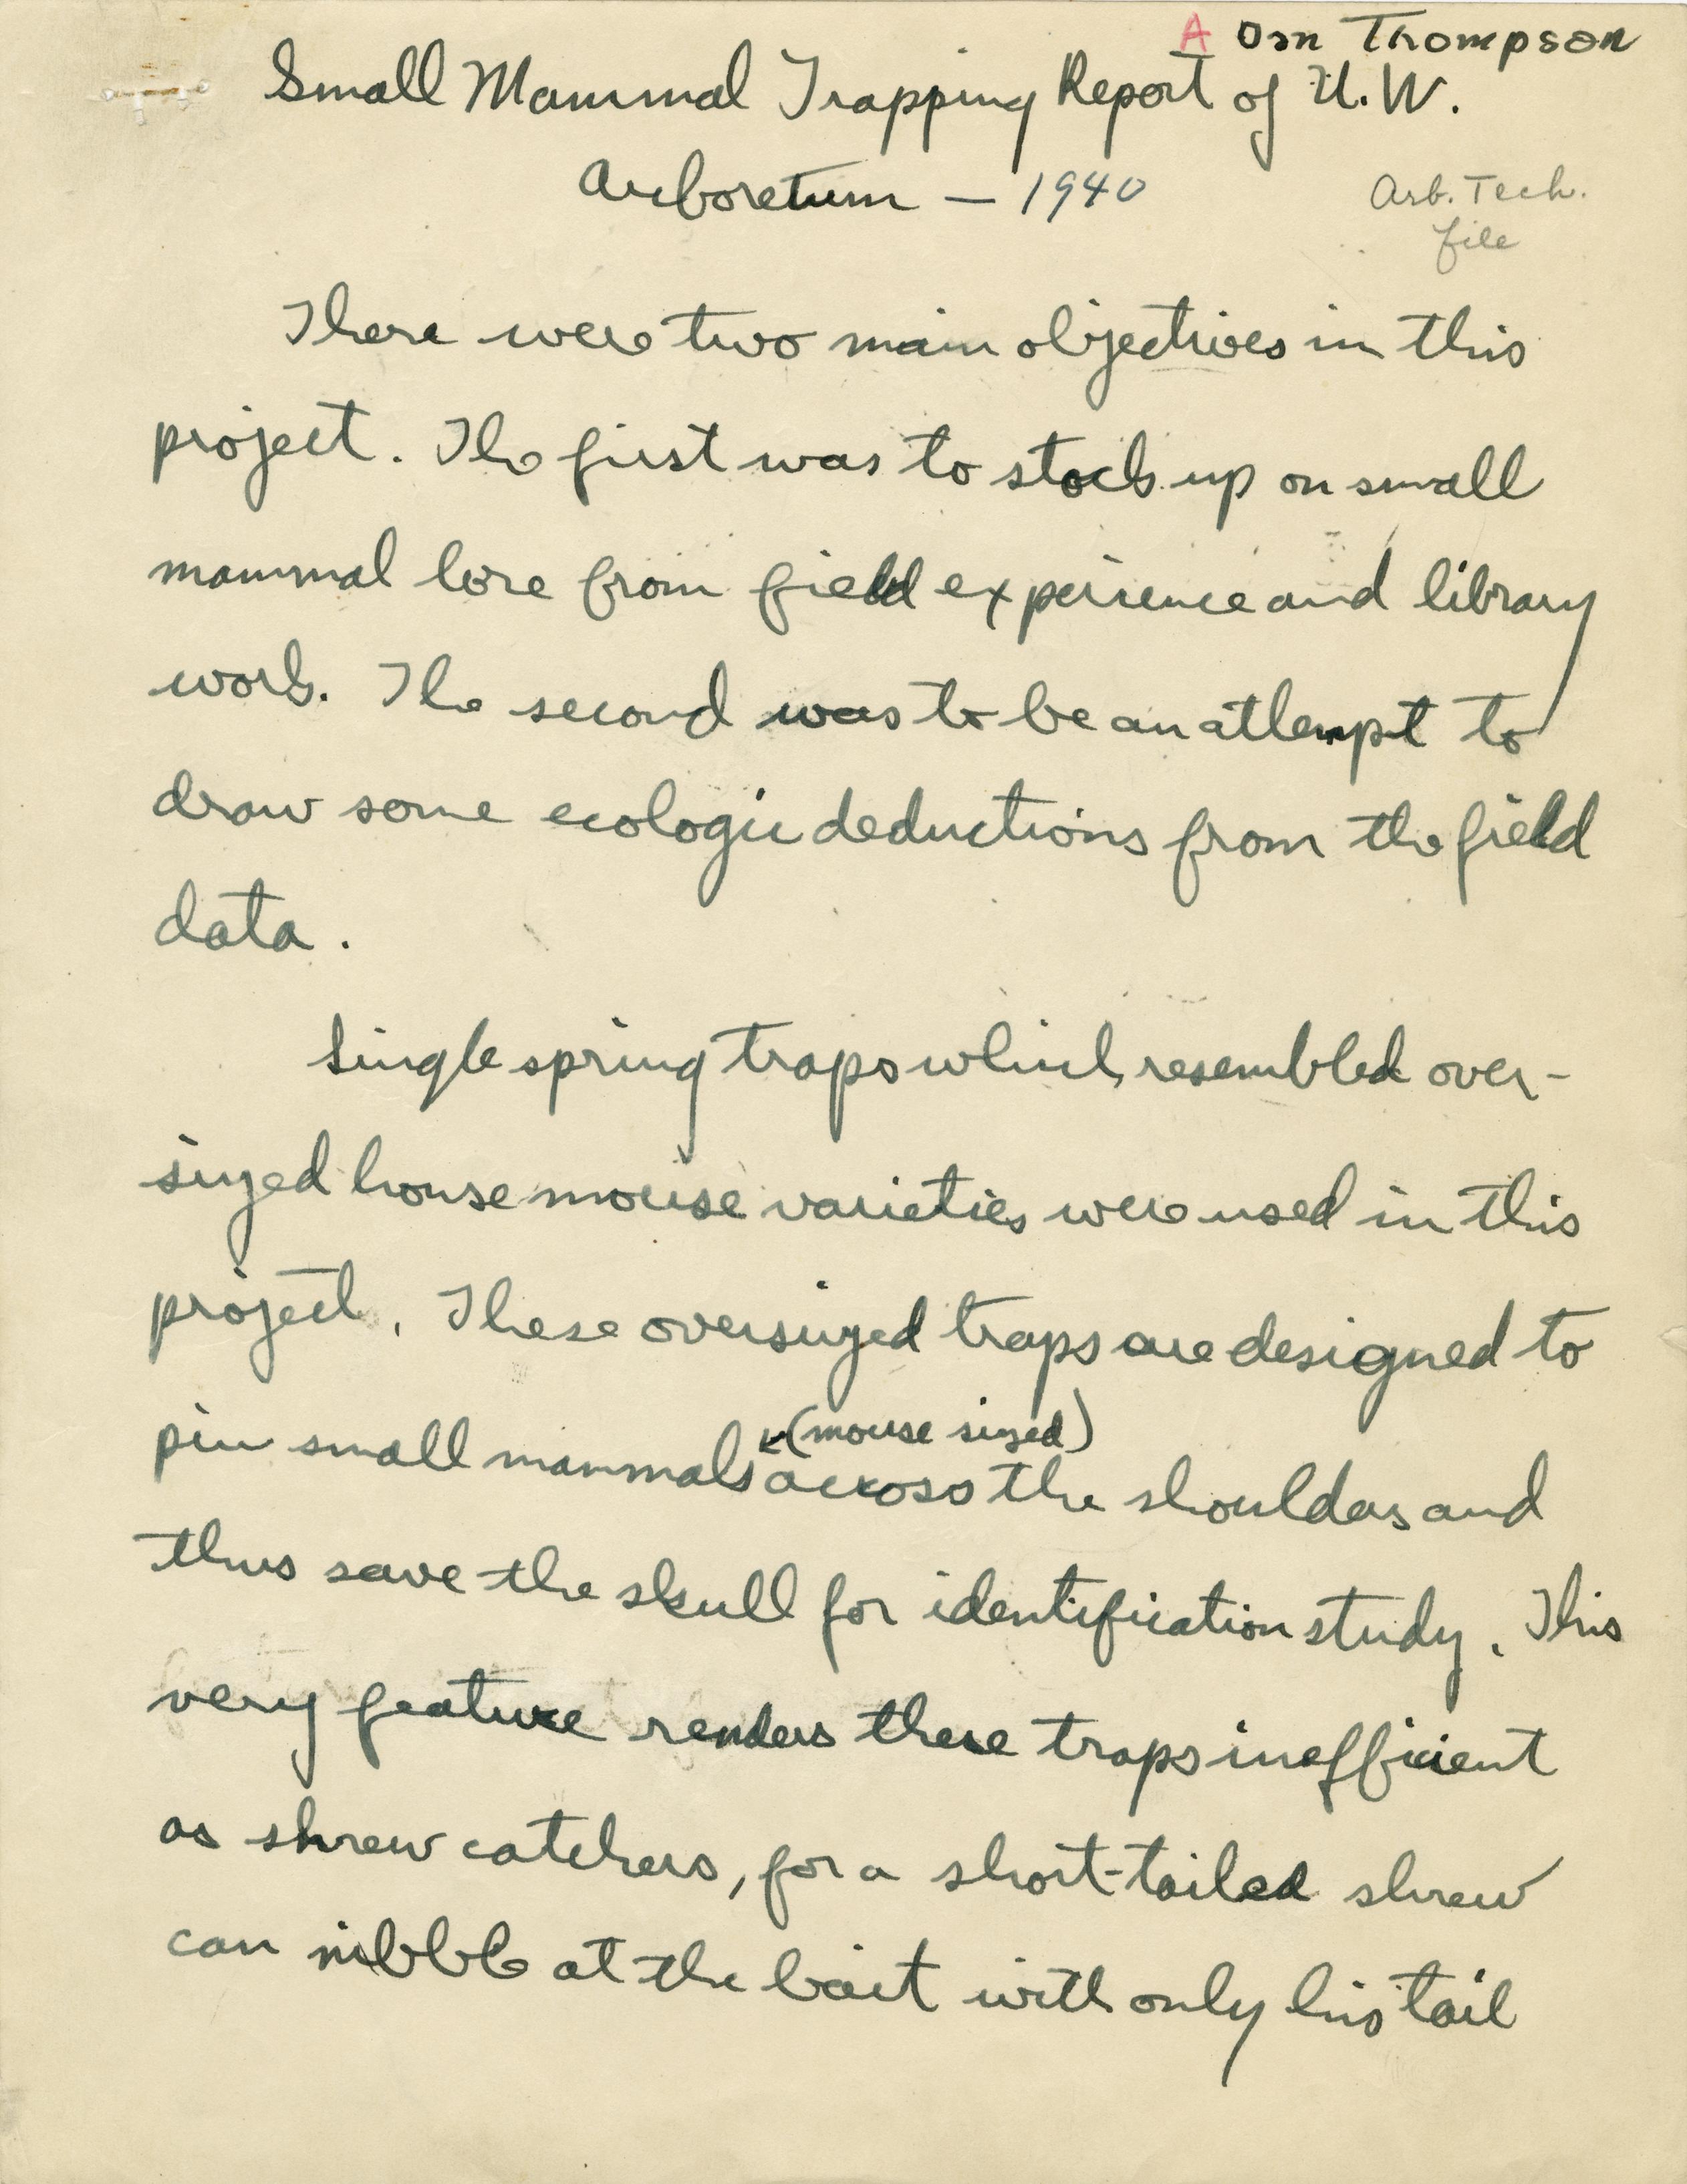 A Don Thompson
Small Mammal Trapping Report of U.W.
Arboretum – 1940
Arb. Tech.
file
There were two main objectives in this
project. The first was to stock up on small
mammal lore from field experience and library
work. The second was to be an attempt to
draw some ecologic deductions from the field
data.
Single spring traps which resembled over-
sized house mouse varieties were used in this
project. These oversized traps are designed to
pin small mammals (mouse sized) across the shoulders and
thus save the skull for identification study. This
very feature renders these traps inefficient
as shrew catchers, for a short-tailed shrew
can nibble at the bait with only his tail